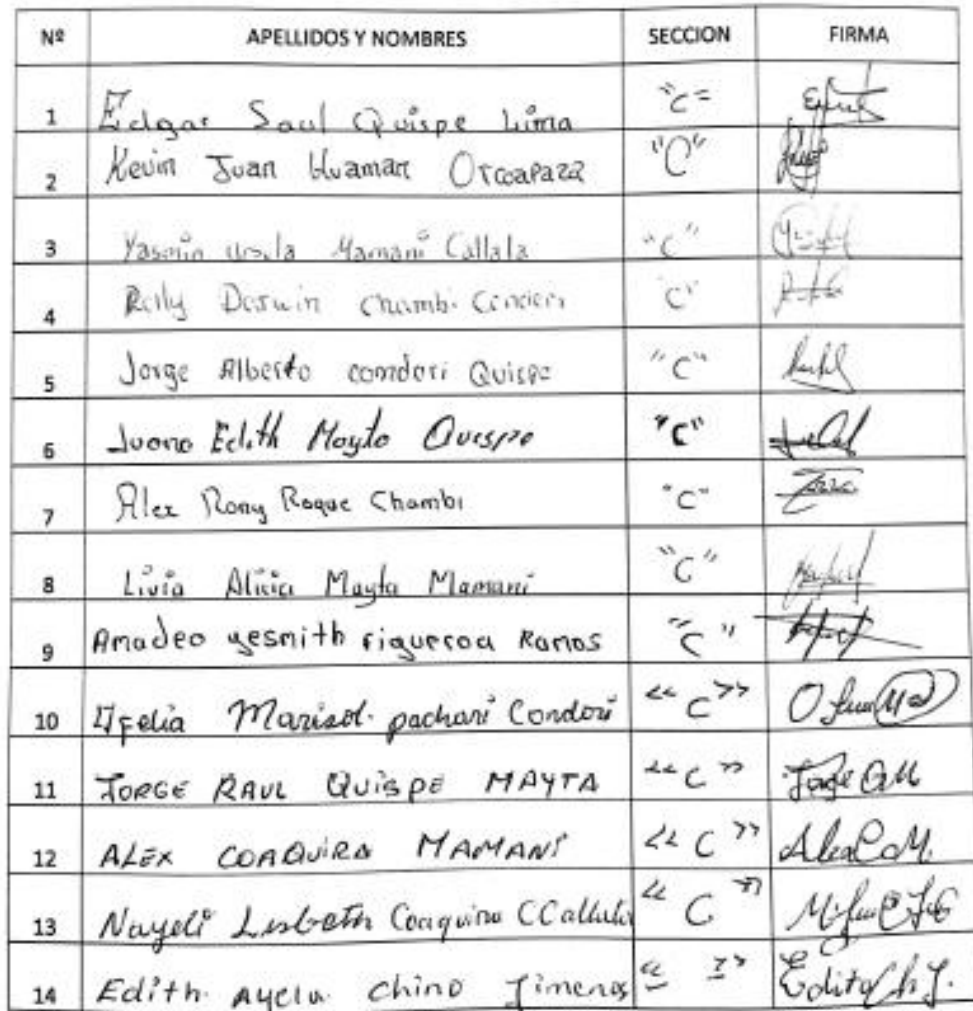 Nº APELLIDOS Y NOMBRES SECCION FIRMA
1 Edgar Saul Quispe Lima "C"
2 Kevin Juan Huaman Orcoapaza "C"
3 Yasmin Ursula Mamani Callala "C"
4 Relly Darwin Chambi "C"
5 Jorge Alberto condori Quispe "C"
6 Juana Edith Mayta Quispe "C"
7 Alex Rony Roque Chambi "C"
8 Livia Alicia Mayta Mamani "C"
9 Amadeo yesmith figueroa Ramos "C"
10 Ofelia Marisol pachari Condori "C"
11 JORGE RAUL QUISPE MAYTA "C" Jorge Q M
12 ALEX COAQUIRA MAMANI "C" Alex C M.
13 Nayeli Lisbeth Coaquira CCallata "C"
14 Edith Ayela Chino Jimenes " " Edith Ch J.